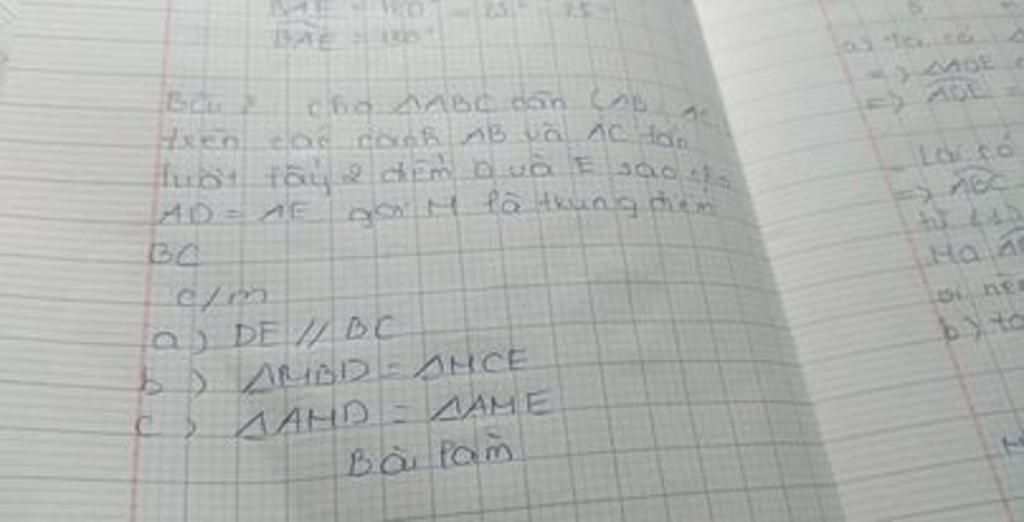 BAE = 180°
BAE = 130°
Bài 2 cho ΔABC cân (AB AC
trên các cạnh AB và AC lần
lượt lấy 2 điểm D và E sao
AD = AE gọi M là trung điểm
BC
c/m
a) DE // BC
b) ΔMBD = ΔMCE
c) ΔAMD = ΔAME
Bài làm
a) ta có Δ
=> ΔADE
=> ADE =
Lại có
=> ABC
từ (1)
Mà
b) ta